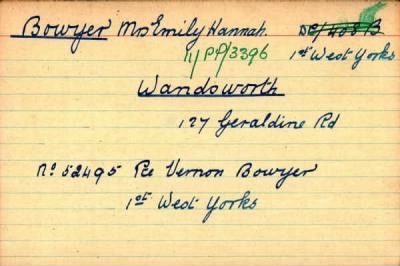 Bowyer Mrs Emily Hannah. DP/408 B
11/PP/3396 1st West Yorks
Wandsworth
127 Geraldine Rd
No 52495 Pte Vernon Bowyer
1st West Yorks